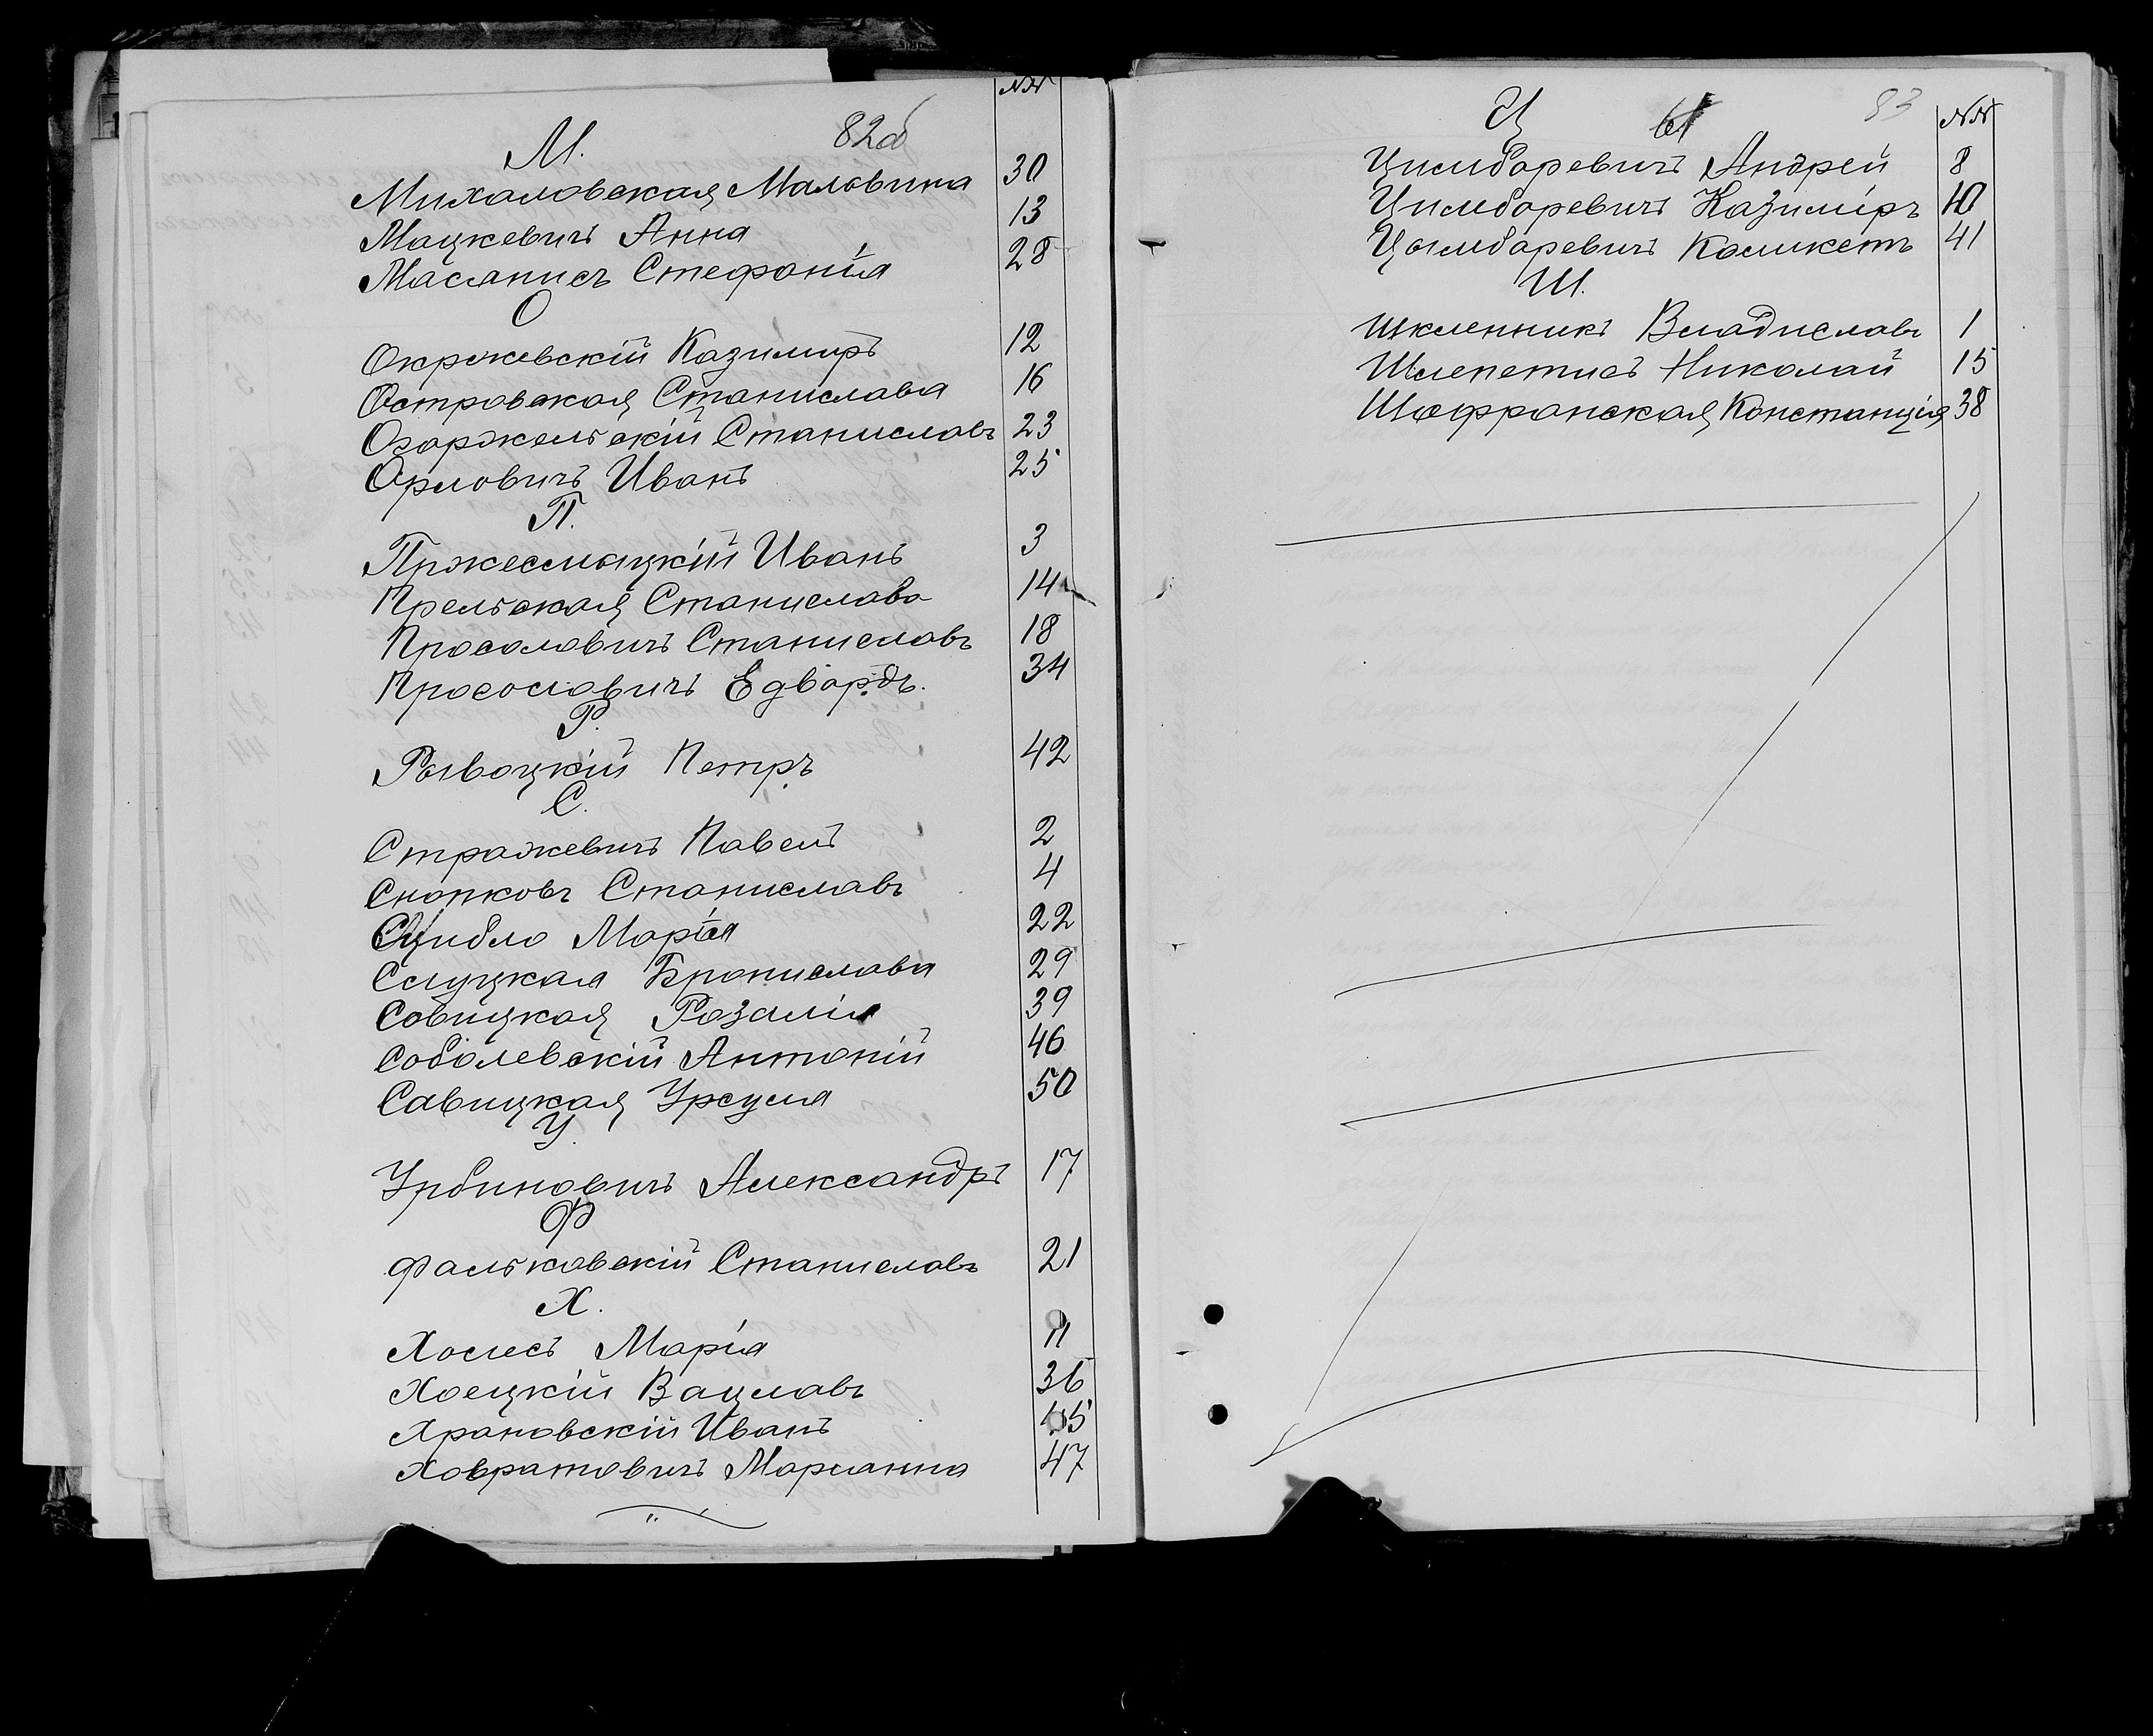 82об
№№
М.
Михаловская Мальвина 30
Мацкевичъ Анна 13
Масянисъ Стефанія 28
О
Окржевскій Казимиръ 12
Островская Станислава 16
Озаржельскій Станиславъ 23
Орловичъ Иванъ 25
П.
Пржесмыцкій Иванъ 3
Прельская Станислава 14
Просоловичъ Станиславъ 18
Просоловичъ Едвардъ. 34
Р.
Рывоцкій Петръ 42
С.
Стражевичъ Павелъ 2
Снопковъ Станиславъ 4
Сцибло Марія 22
Слуцкая Брониславa 29
Совицкая Розалія 39
Соболевскій Антоній 46
Савицкая Урсуля 50
У.
Урбиновичъ Александръ 17
Ф
Фальковскій Станиславъ 21
Х.
Холесъ Марія 11
Хоецкій Вацлавъ 36
Храновскій Иванъ 45
Ховратовичъ Марианна 47
83
Ц
№№
Цимбаревичъ Андрей 8
Цимбаревичъ Казиміръ 10
Цымбаревичъ Каликстъ 41
Ш.
Шкленникъ Владиславъ 1
Шлепетисъ Николай 15
Шафранская Констанція 38